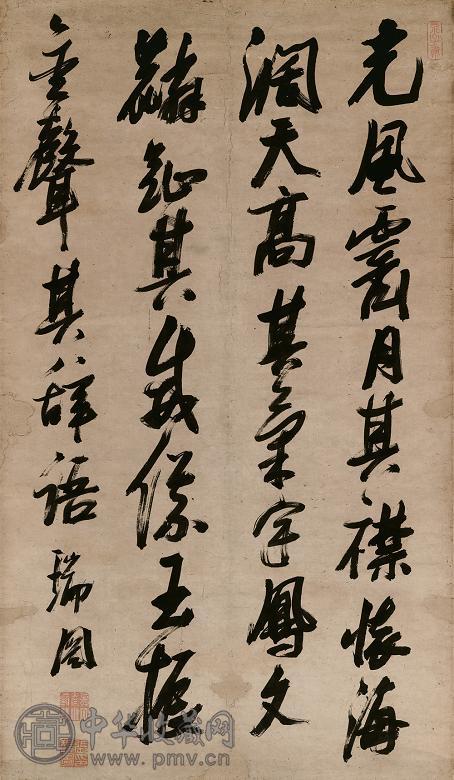 光風霽月其襟懷海
濶天高其氣宇鳳文
麟趾其威儀玉振
金聲其辭語 瑞圖
中华收藏网
www.pmv.cn